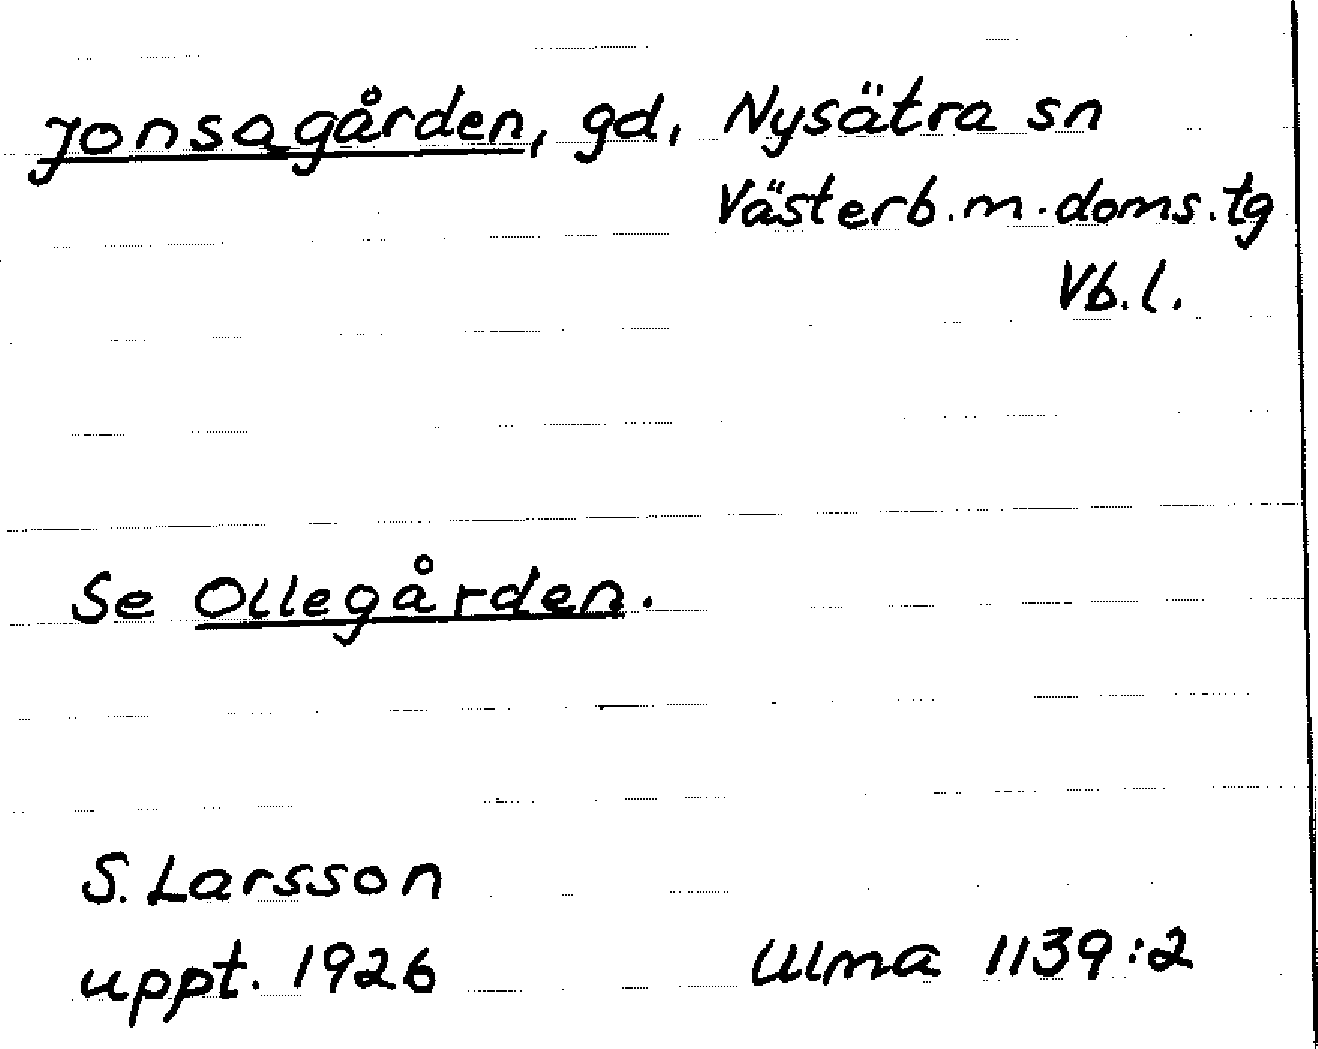 Jonsagården, gd, Nysätra sn
Västerb.m.doms.tg
Vb.l.
Se Ollegården.
S. Larsson
uppt. 1926 Ulma 1139:2